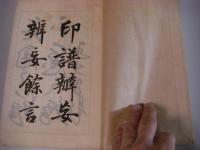 印譜辨妄
辨妄餘言